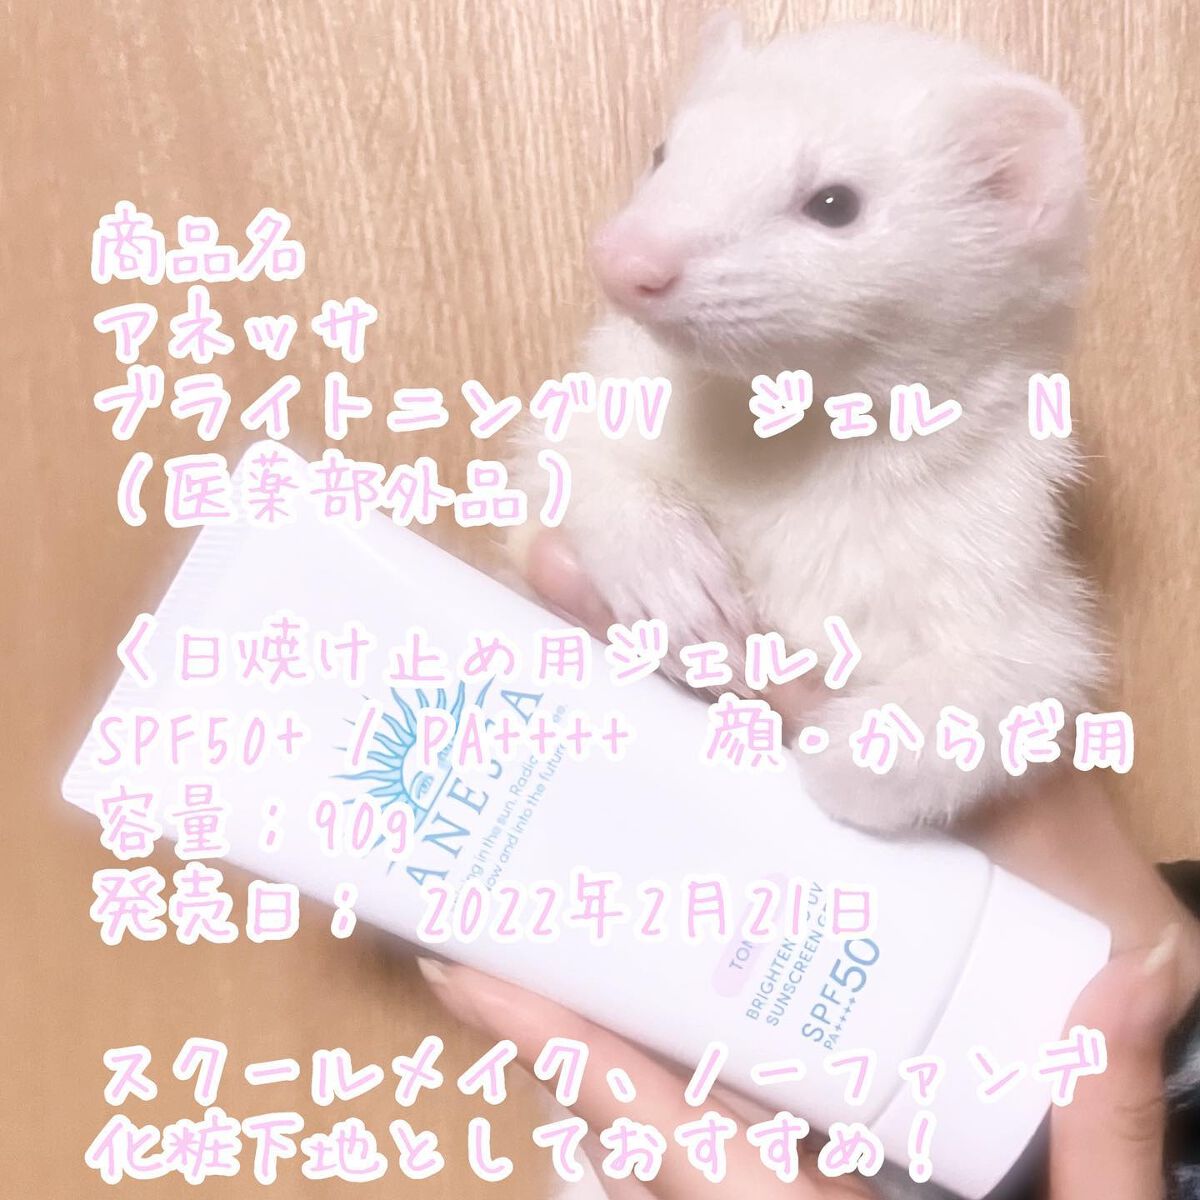 商品名
アネッサ
ブライトニングUV　ジェル　N
（医薬部外品）
〈日焼け止め用ジェル〉
SPF50+ / PA++++　顔・からだ用
容量：90g
発売日： 2022年2月21日
スクールメイク、ノーファンデ
化粧下地としておすすめ！
ANESSA
in the sun. Radia
now and into the future
BRIGHTEN UV
SUNSCREEN
SPF50
PA++++